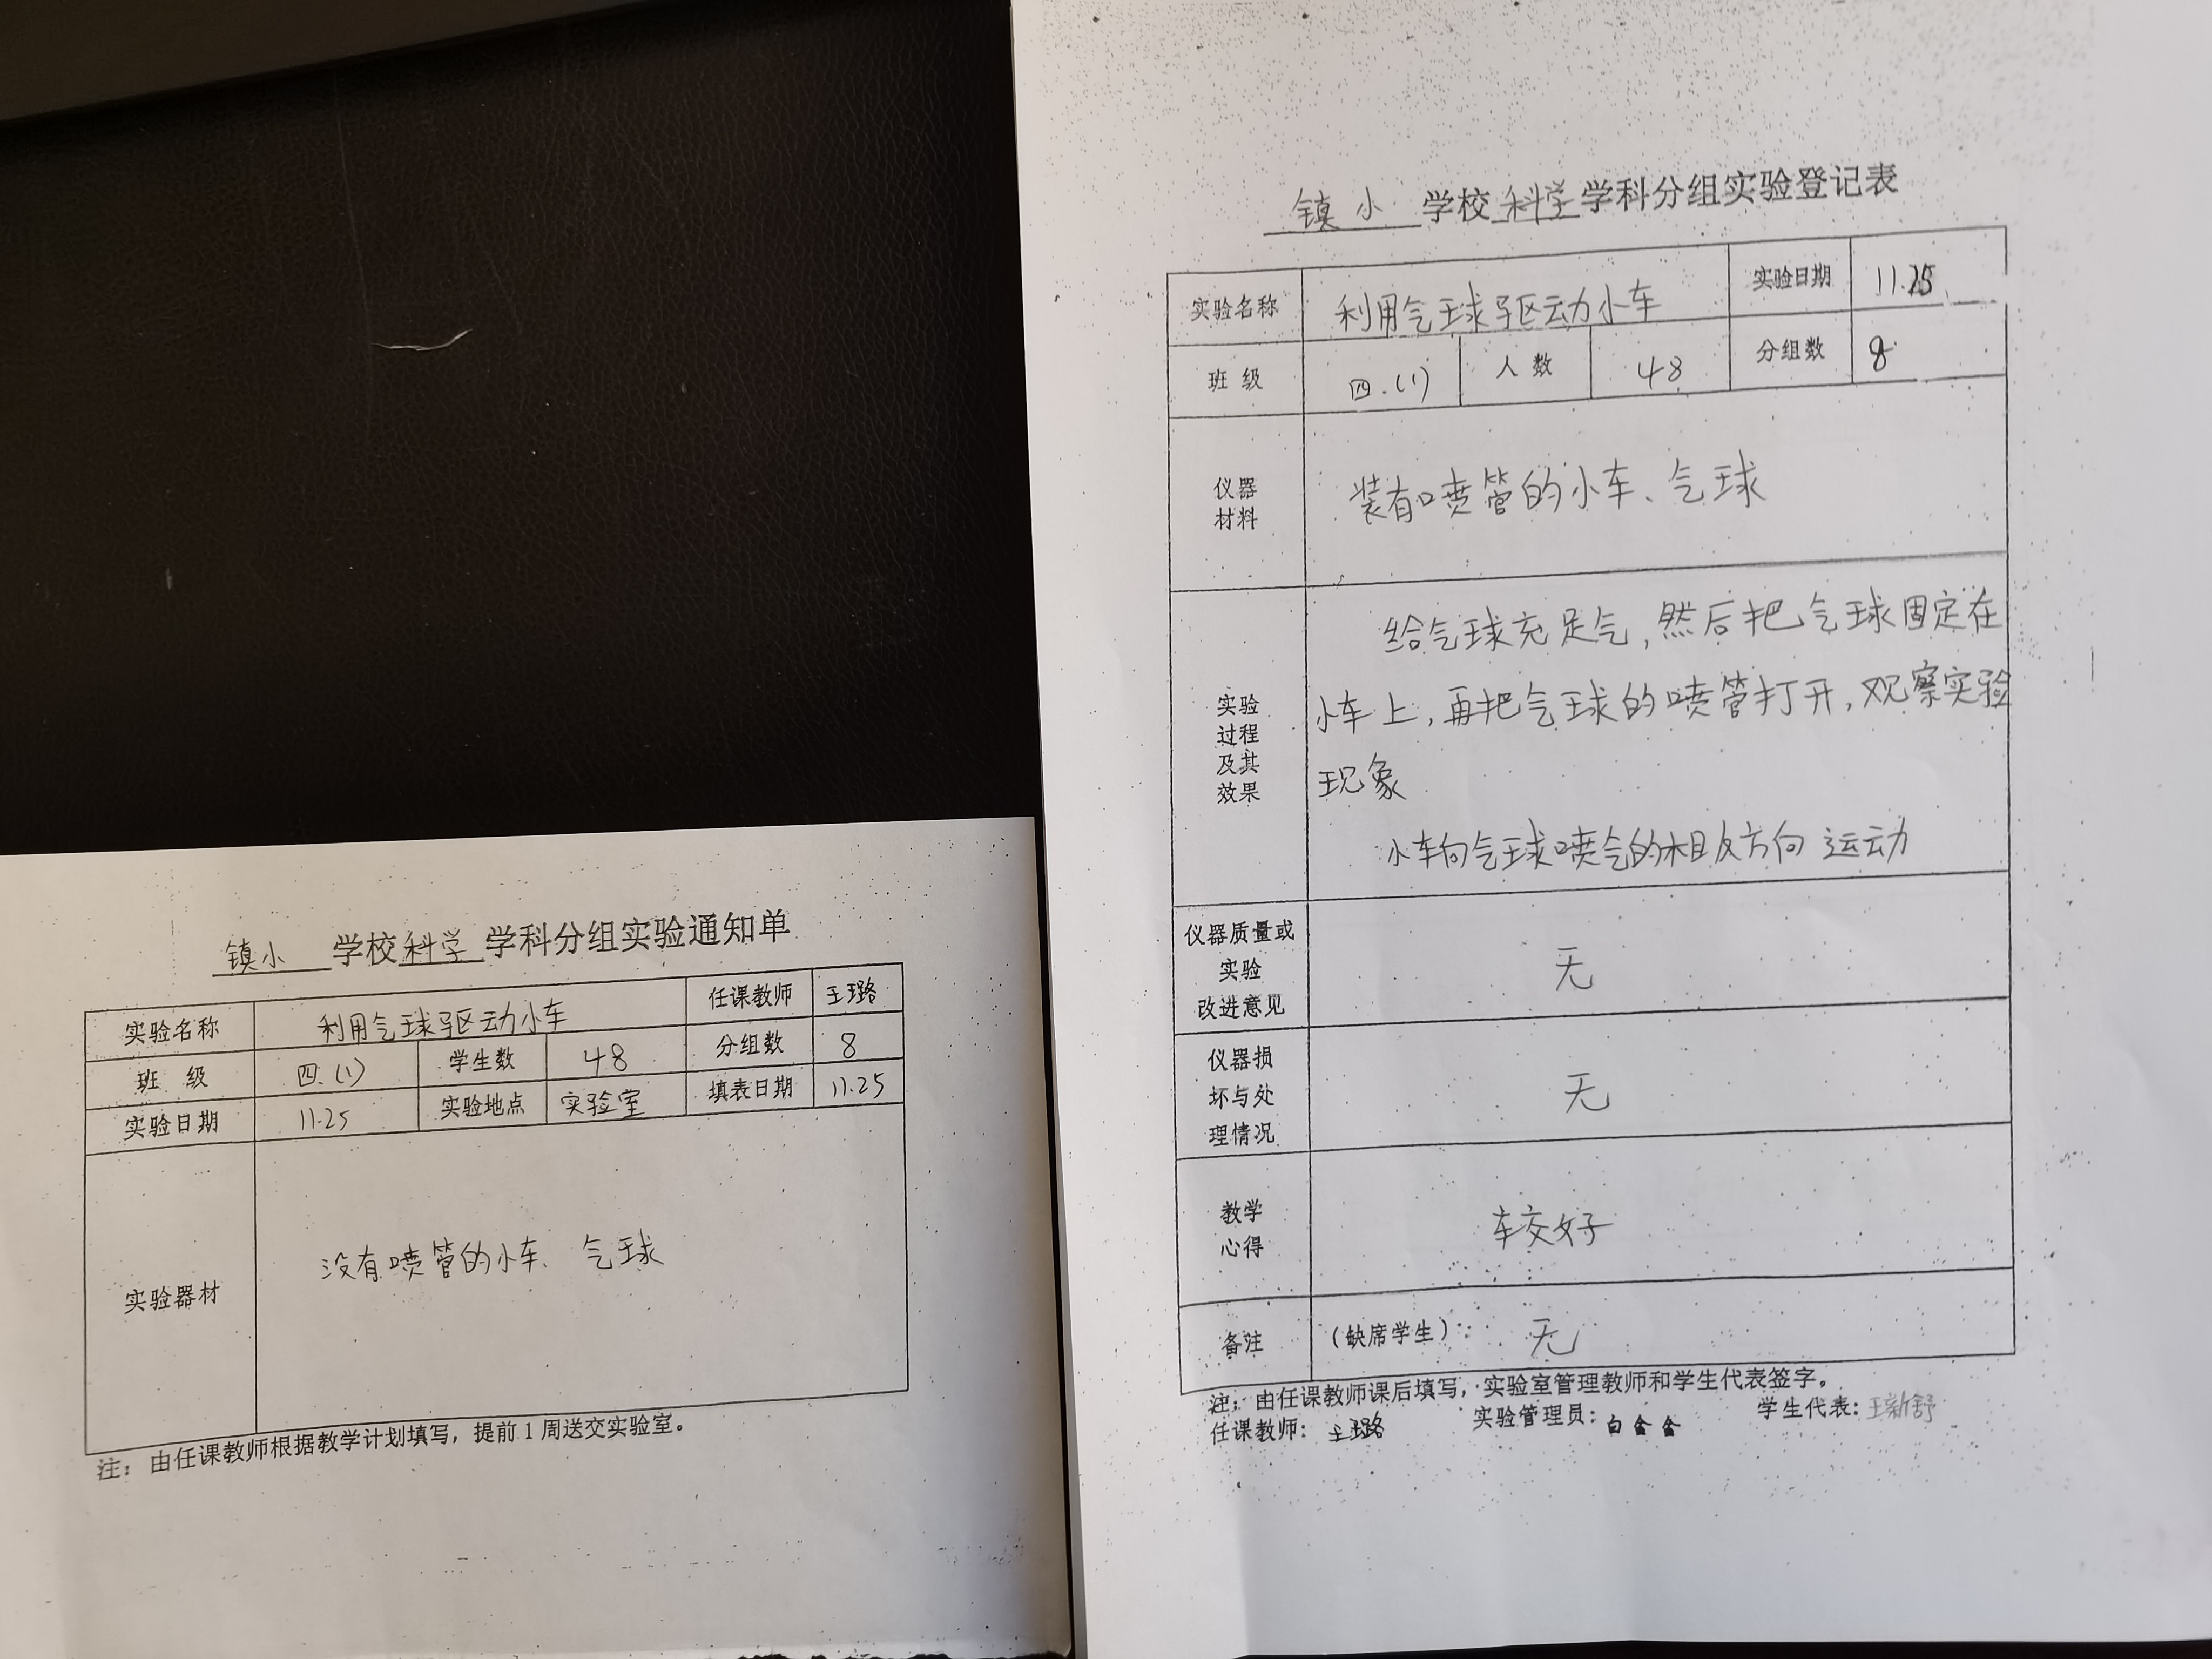 镇小 学校 科学 学科分组实验通知单
实验名称 利用气球驱动小车 任课教师 王璐
班 级 四.(1) 学生数 48 分组数 8
实验日期 11.25 实验地点 实验室 填表日期 11.25
实验器材 没有喷管的小车、气球
注：由任课教师根据教学计划填写，提前1周送交实验室。
镇小 学校 科学 学科分组实验登记表
实验名称 利用气球驱动小车 实验日期 11.25
班 级 四.(1) 人 数 48 分组数 8
仪器
材料
装有喷管的小车、气球
实验
过程
及其
效果
给气球充足气，然后把气球固定在
小车上，再把气球的喷管打开，观察实验
现象
小车向气球喷气的相反方向运动
仪器质量或
实验
改进意见
无
仪器损
坏与处
理情况
无
教学
心得
较好
备注 （缺席学生）: 无
注：由任课教师课后填写，实验室管理教师和学生代表签字。
任课教师： 王璐 实验管理员： 白 学生代表： 舒